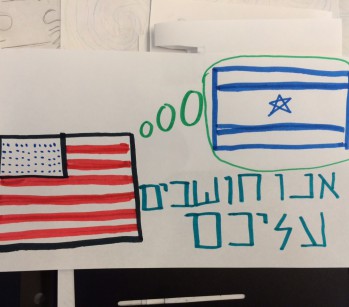 אנו חושבים
עליכם